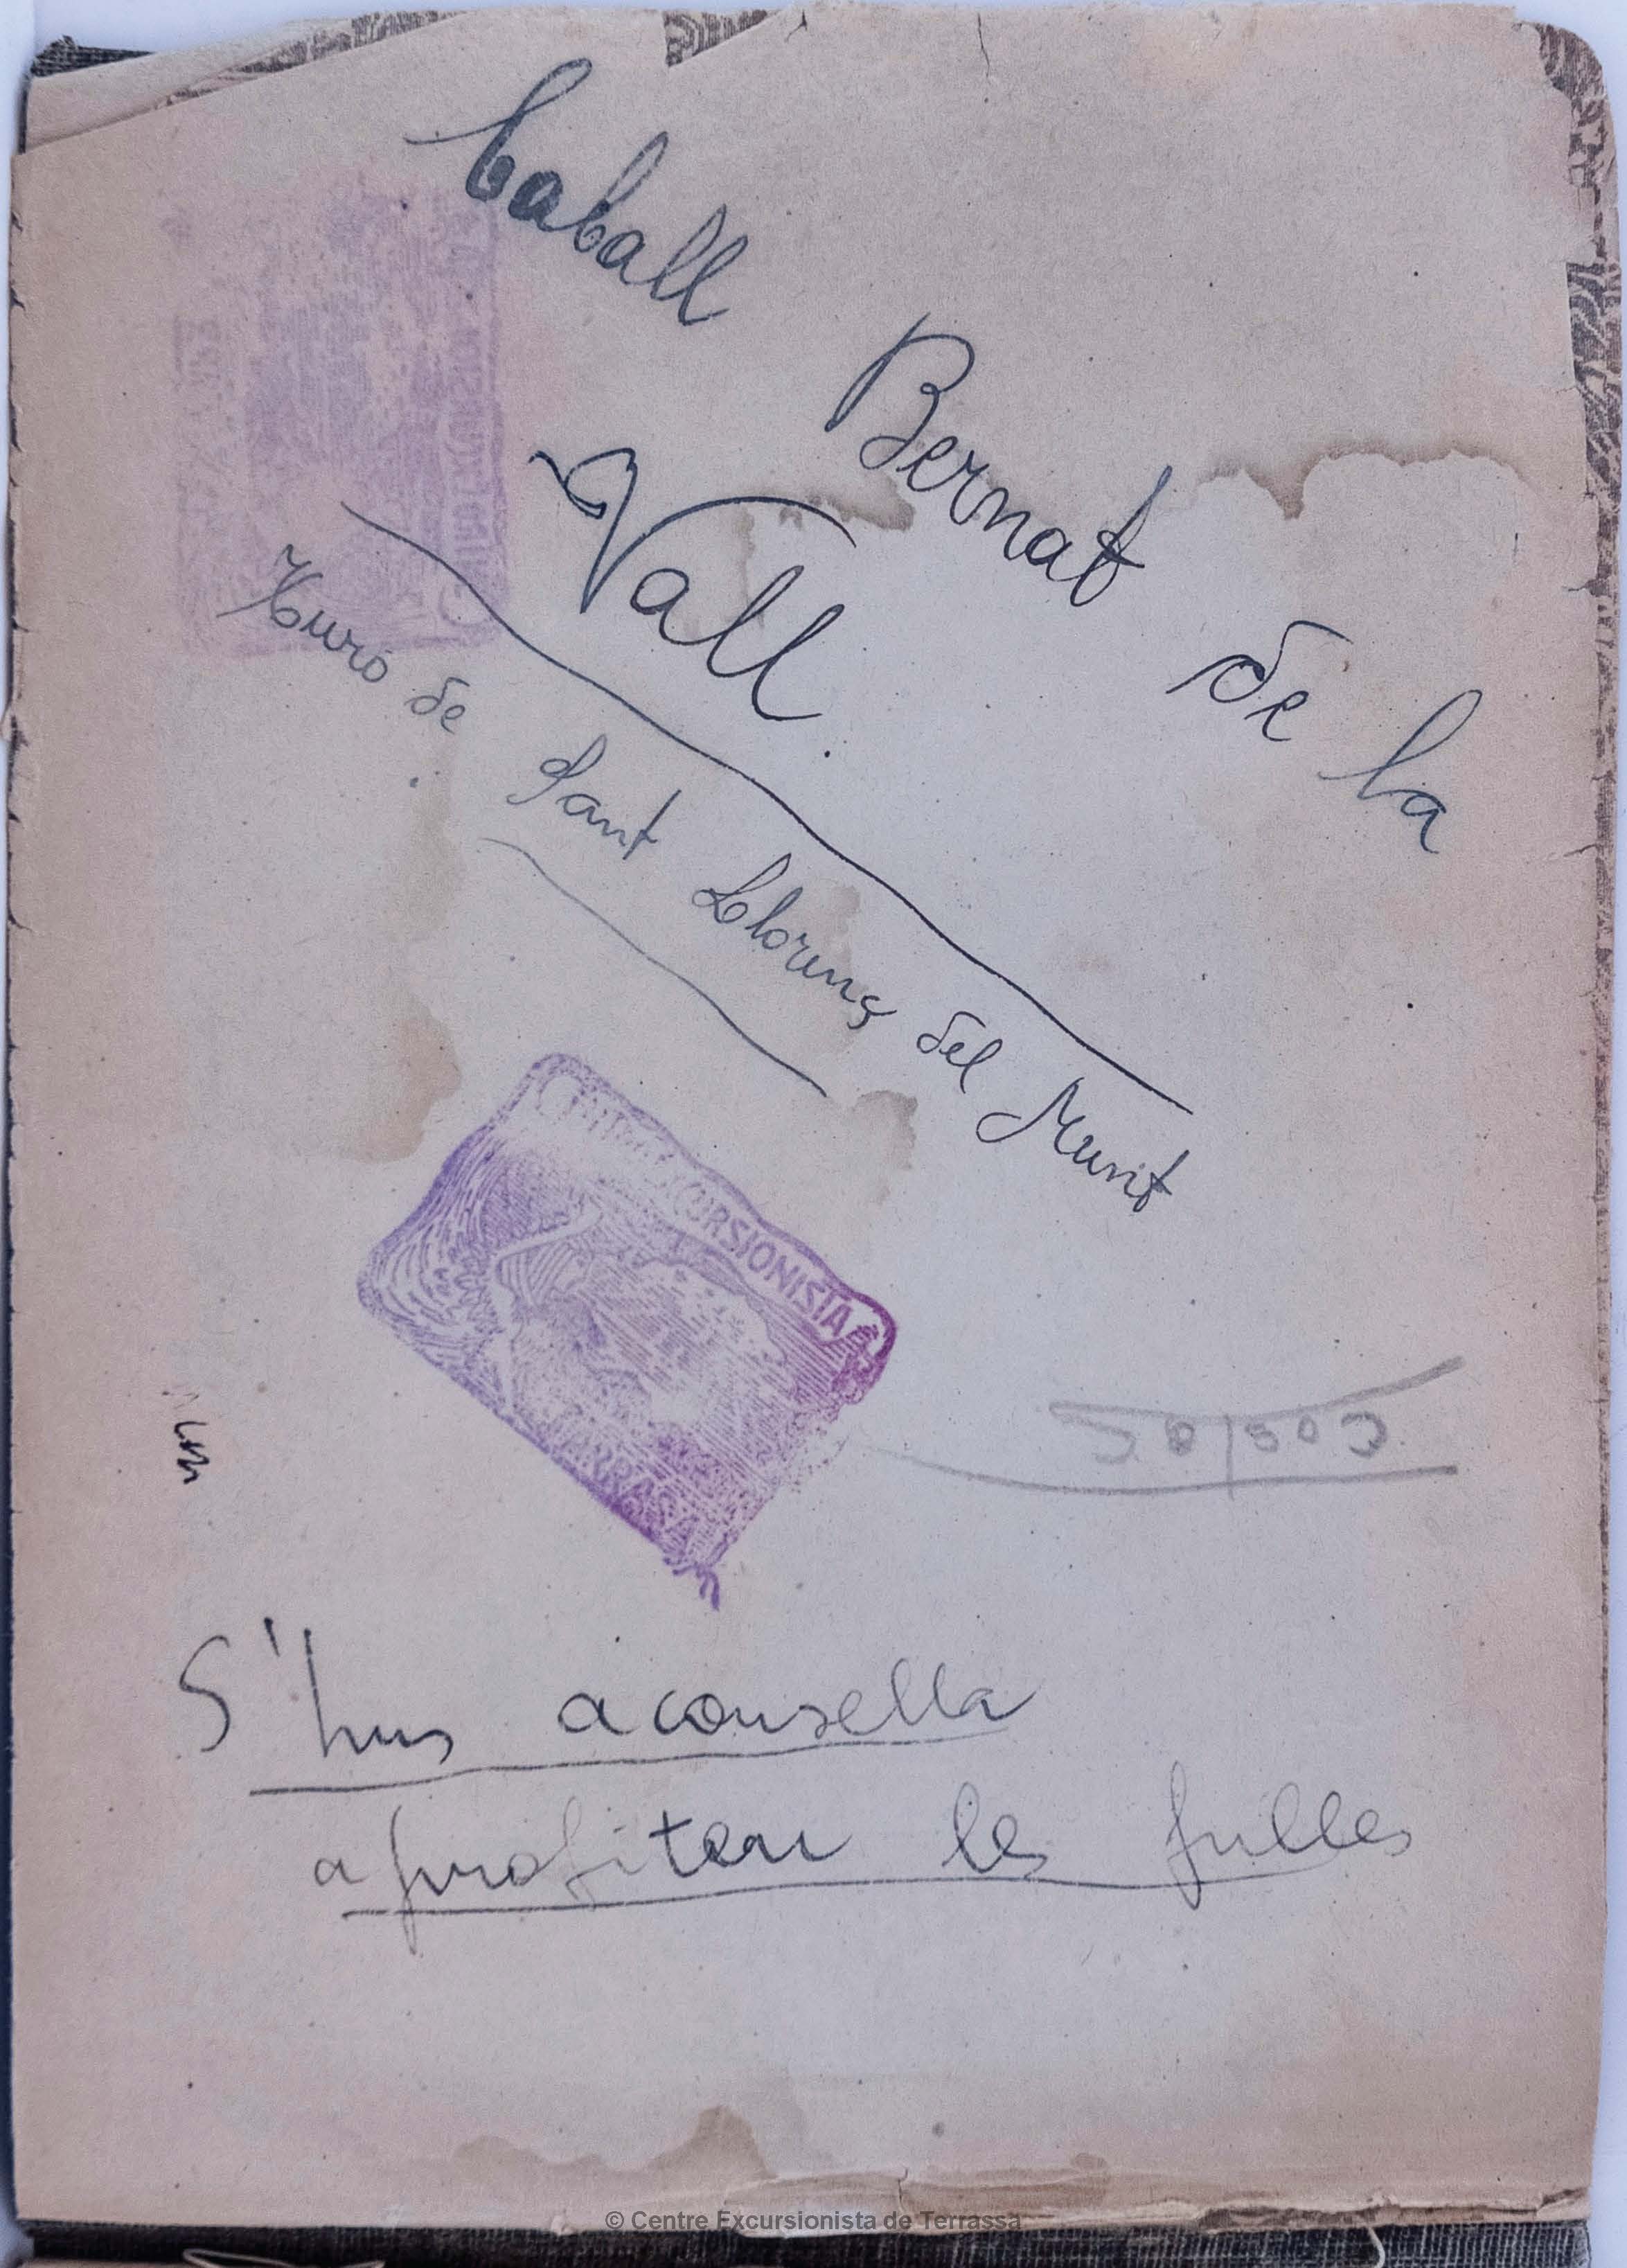 Caball Bernat de la
Vall.
Turó de Sant Llorenç del Munt
CENTRE EXCURSIONISTA
TARRASA
S'hus aconsella
aprofiteu les fulles
© Centre Excursionista de Terrassa